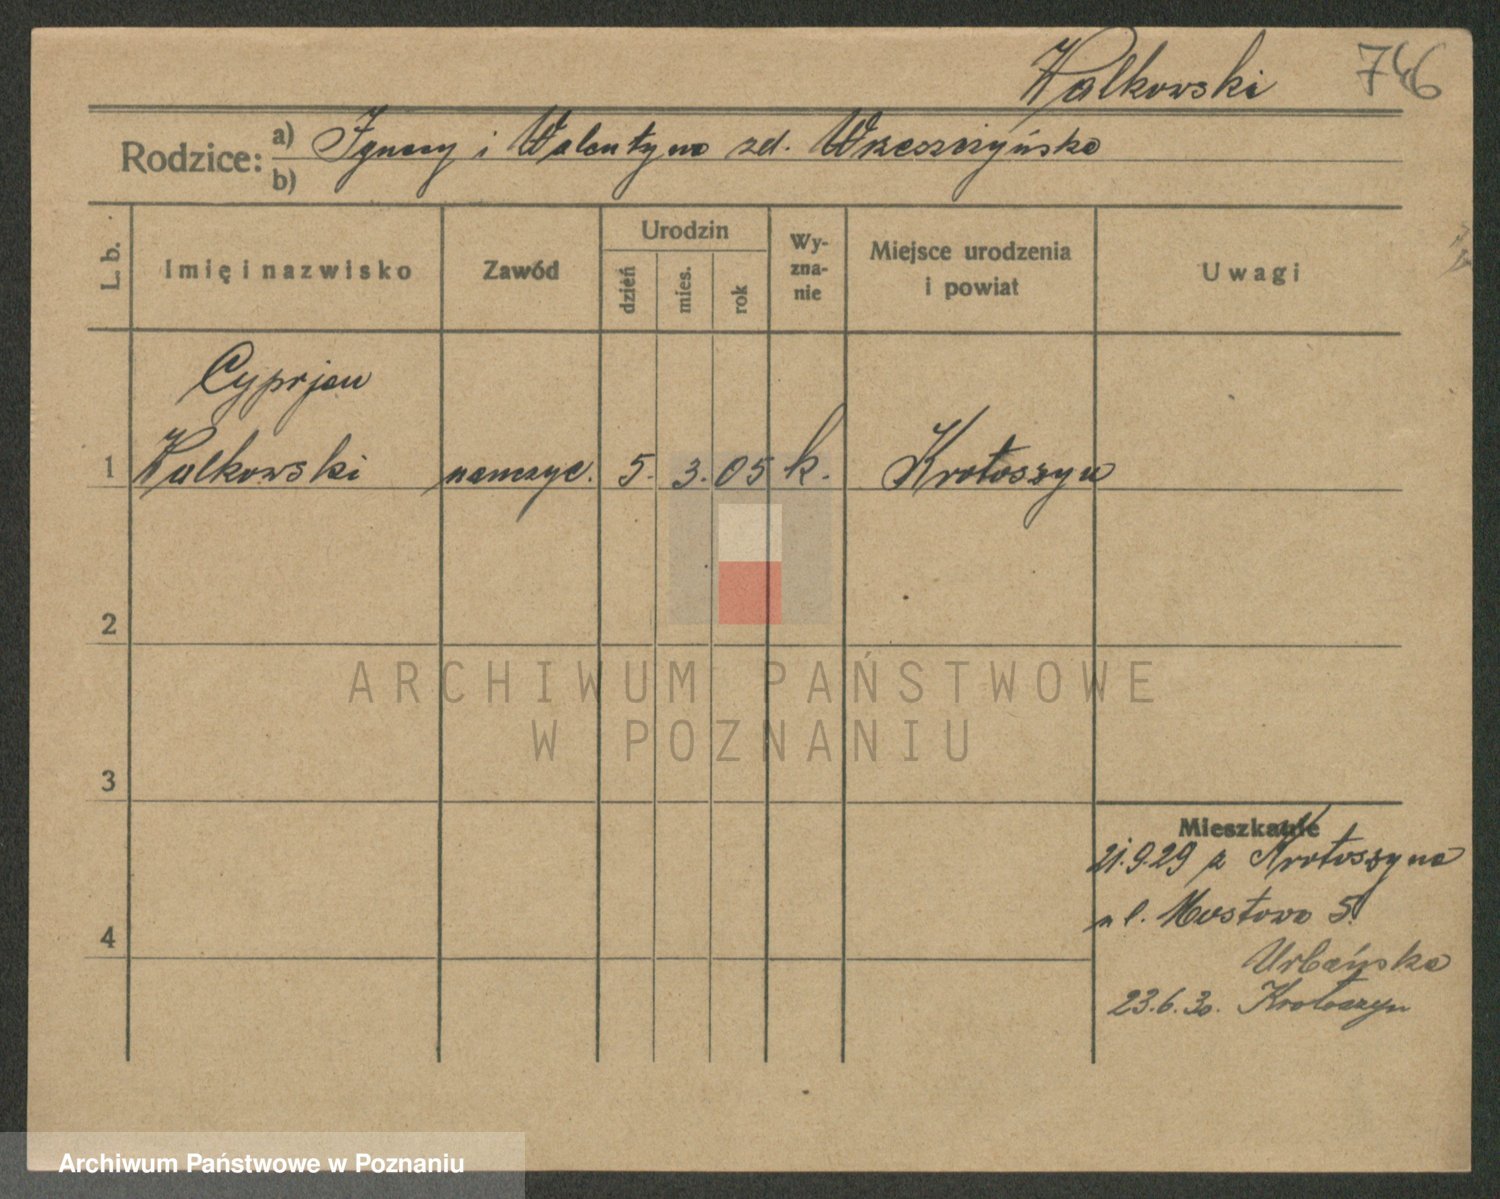 Kalkowski 746
Rodzice: a) Ignacy i Walentyna zd. Wrzeszczyńska
b)
L. b. Imię i nazwisko Zawód Urodzin dzień mies. rok Wy-zna-nie Miejsce urodzenia i powiat Uwagi
Cyprjan
1 Kalkowski nauczyc. 5. 3. 05 k. Krotoszyn
2
ARCHIWUM PAŃSTWOWE
W POZNANIU
3
Mieszkanie
21.9.29 z Krotoszyna
ul. Mostowa 5
4
Urbańska
23.6.30. Krotoszyn
Archiwum Państwowe w Poznaniu